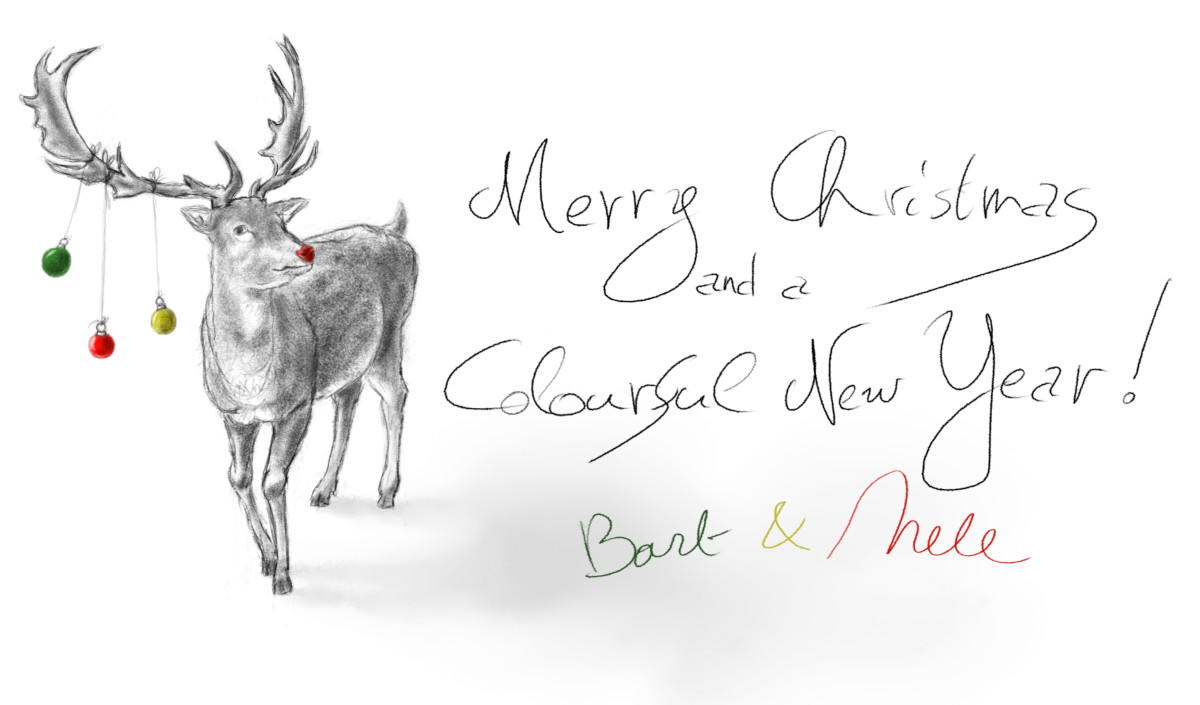 Merry Christmas
and a
Colourful New Year!
Bart & Nele